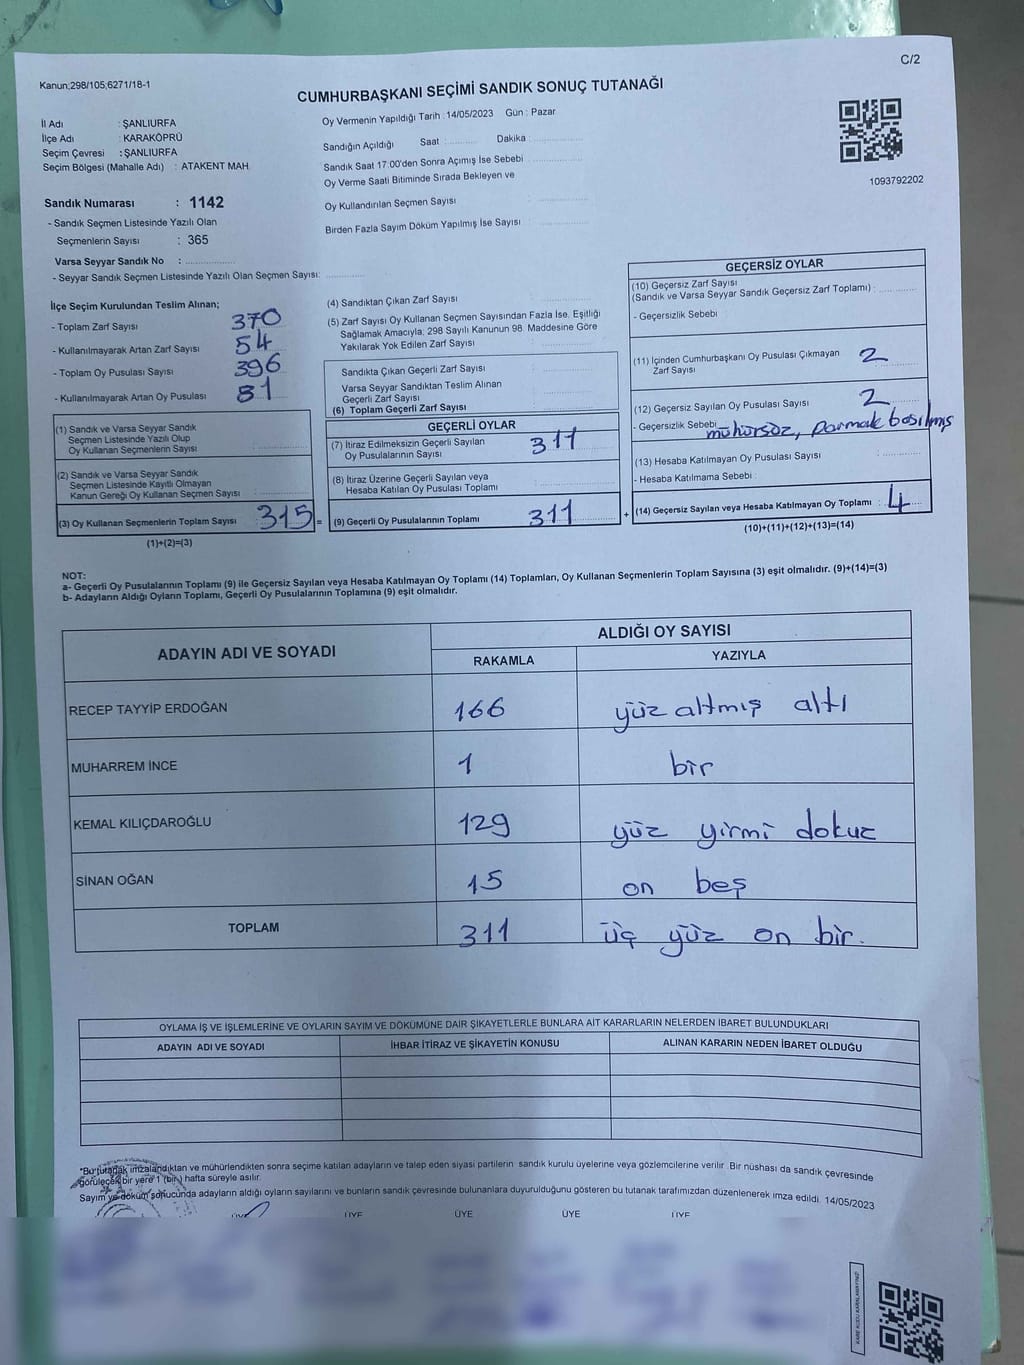 C/2
Kanun;298/105;6271/18-1
CUMHURBAŞKANI SEÇİMİ SANDIK SONUÇ TUTANAĞI
İl Adı : ŞANLIURFA
İlçe Adı : KARAKÖPRÜ
Seçim Çevresi : ŞANLIURFA
Seçim Bölgesi (Mahalle Adı) : ATAKENT MAH.
Sandık Numarası : 1142
- Sandık Seçmen Listesinde Yazılı Olan
Seçmenlerin Sayısı : 365
Varsa Seyyar Sandık No :
- Seyyar Sandık Seçmen Listesinde Yazılı Olan Seçmen Sayısı:
Oy Vermenin Yapıldığı Tarih : 14/05/2023 Gün : Pazar
Sandığın Açıldığı Saat : Dakika :
Sandık Saat 17:00'den Sonra Açımış İse Sebebi :
Oy Verme Saati Bitiminde Sırada Bekleyen ve
Oy Kullandırılan Seçmen Sayısı :
Birden Fazla Sayım Döküm Yapılmış İse Sayısı :
1093792202
İlçe Seçim Kurulundan Teslim Alınan;
- Toplam Zarf Sayısı 370
- Kullanılmayarak Artan Zarf Sayısı 54
- Toplam Oy Pusulası Sayısı 396
- Kullanılmayarak Artan Oy Pusulası 81
(1) Sandık ve Varsa Seyyar Sandık
Seçmen Listesinde Yazılı Olup
Oy Kullanan Seçmenlerin Sayısı
(2) Sandık ve Varsa Seyyar Sandık
Seçmen Listesinde Kayıtlı Olmayan
Kanun Gereği Oy Kullanan Seçmen Sayısı
(3) Oy Kullanan Seçmenlerin Toplam Sayısı 315 =
(1)+(2)=(3)
(4) Sandıktan Çıkan Zarf Sayısı
(5) Zarf Sayısı Oy Kullanan Seçmen Sayısından Fazla İse, Eşitliği
Sağlamak Amacıyla, 298 Sayılı Kanunun 98. Maddesine Göre
Yakılarak Yok Edilen Zarf Sayısı
Sandıkta Çıkan Geçerli Zarf Sayısı
Varsa Seyyar Sandıktan Teslim Alınan
Geçerli Zarf Sayısı
(6) Toplam Geçerli Zarf Sayısı
GEÇERLİ OYLAR
(7) İtiraz Edilmeksizin Geçerli Sayılan
Oy Pusulalarının Sayısı 311
(8) İtiraz Üzerine Geçerli Sayılan veya
Hesaba Katılan Oy Pusulası Toplamı
(9) Geçerli Oy Pusulalarının Toplamı 311 +
GEÇERSİZ OYLAR
(10) Geçersiz Zarf Sayısı
(Sandık ve Varsa Seyyar Sandık Geçersiz Zarf Toplamı) :
- Geçersizlik Sebebi :
(11) İçinden Cumhurbaşkanı Oy Pusulası Çıkmayan
Zarf Sayısı 2
(12) Geçersiz Sayılan Oy Pusulası Sayısı 2
- Geçersizlik Sebebi mühürsüz, parmak basılmış
(13) Hesaba Katılmayan Oy Pusulası Sayısı :
- Hesaba Katılmama Sebebi :
(14) Geçersiz Sayılan veya Hesaba Katılmayan Oy Toplamı : 4
(10)+(11)+(12)+(13)=(14)
NOT:
a- Geçerli Oy Pusulalarının Toplamı (9) ile Geçersiz Sayılan veya Hesaba Katılmayan Oy Toplamı (14) Toplamları, Oy Kullanan Seçmenlerin Toplam Sayısına (3) eşit olmalıdır. (9)+(14)=(3)
b- Adayların Aldığı Oyların Toplamı, Geçerli Oy Pusulalarının Toplamına (9) eşit olmalıdır.
ADAYIN ADI VE SOYADI ALDIĞI OY SAYISI
RAKAMLA YAZIYLA
RECEP TAYYİP ERDOĞAN 166 yüz altmış altı
MUHARREM İNCE 1 bir
KEMAL KILIÇDAROĞLU 129 yüz yirmi dokuz
SİNAN OĞAN 15 on beş
TOPLAM 311 üç yüz on bir.
OYLAMA İŞ VE İŞLEMLERİNE VE OYLARIN SAYIM VE DÖKÜMÜNE DAİR ŞİKAYETLERLE BUNLARA AİT KARARLARIN NELERDEN İBARET BULUNDUKLARI
ADAYIN ADI VE SOYADI İHBAR İTİRAZ VE ŞİKAYETİN KONUSU ALINAN KARARIN NEDEN İBARET OLDUĞU
*Bu tutanak imzalandıktan ve mühürlendikten sonra seçime katılan adayların ve talep eden siyasi partilerin sandık kurulu üyelerine veya gözlemcilerine verilir. Bir nüshası da sandık çevresinde
görülecek bir yere 1 (bir) hafta süreyle asılır.
Sayım ve döküm sonucunda adayların aldığı oyların sayılarını ve bunların sandık çevresinde bulunanlara duyurulduğunu gösteren bu tutanak tarafımızdan düzenlenerek imza edildi. 14/05/2023
ÜYE ÜYE ÜYE ÜYE ÜYE